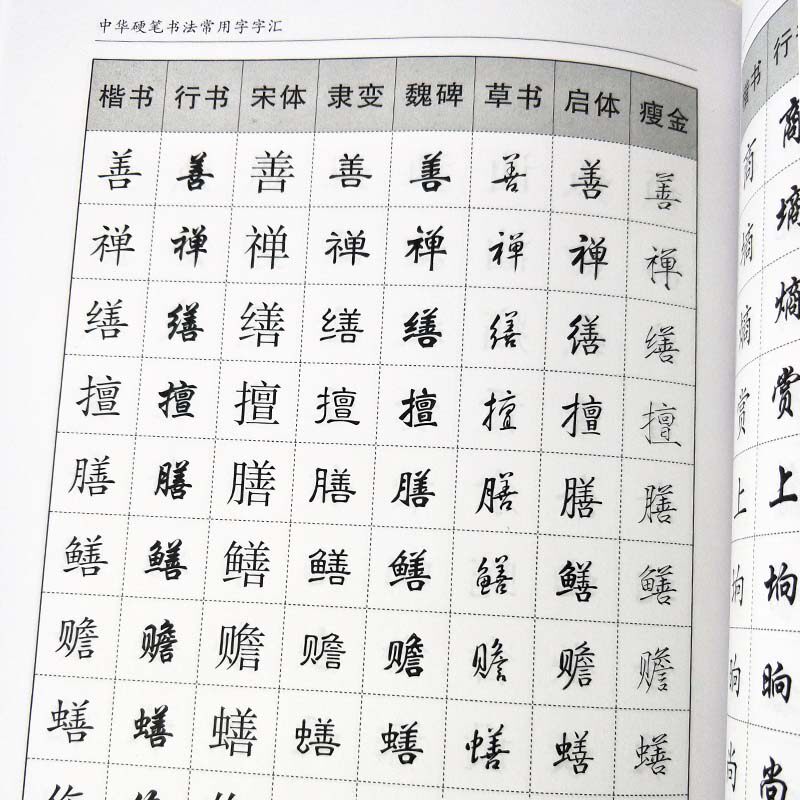 中华硬笔书法常用字字汇
楷书 行书 宋体 隶变 魏碑 草书 启体 瘦金
善 善 善 善 善 善 善 善
禅 禅 禅 禅 禅 禅 禅 禅
缮 缮 缮 缮 缮 缮 缮 缮
擅 擅 擅 擅 擅 擅 擅 擅
膳 膳 膳 膳 膳 膳 膳 膳
鳝 鳝 鳝 鳝 鳝 鳝 鳝 鳝
赡 赡 赡 赡 赡 赡 赡 赡
蟮 蟮 蟮 蟮 蟮 蟮 蟮 蟮
楷书 行
商 商
墒 墒
熵 熵
赏 赏
上 上
垧 垧
晌 晌
尚 尚